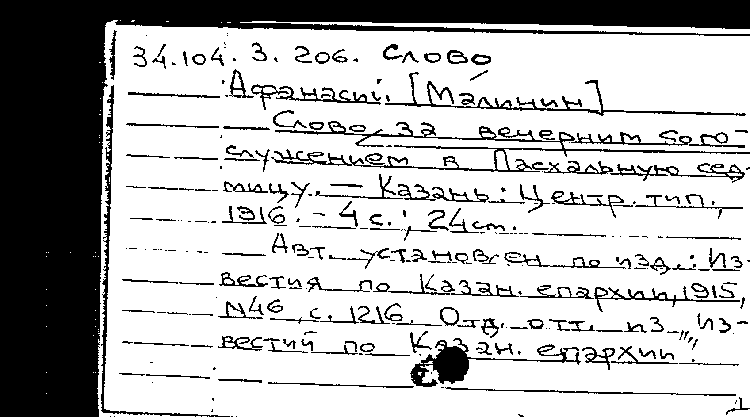 34.104.3.206. Слово
Афанасий. [Малинин]
Слово за вечерним бого-
служением в Пасхальную сед-
мицу. — Казань: Центр. тип.,
1916. - 4 с.; 24 см.
Авт. установлен по изд.: Из-
вестия по Казан. епархии, 1915,
N46, с. 1216. Отд. отт. из „Из-
вестий по Казан. епархии".